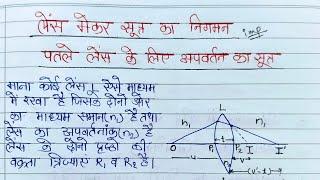 लेंस मेकर सूत्र का निगमन imp
पतले लेंस के लिए अपवर्तन का सूत्र
माना कोई लेंस L ऐसे माध्यम
में रखा है जिसके दोनों ओर
का माध्यम समान(n₁) है तथा
लेंस का अपवर्तनांक(n₂) है
लेंस के दोनों पृष्ठों की
वक्रता त्रिज्याएं R₁ व R₂ है।
L
n₁ n₁
O P₁ P₂ I I'
u
(v'-t)